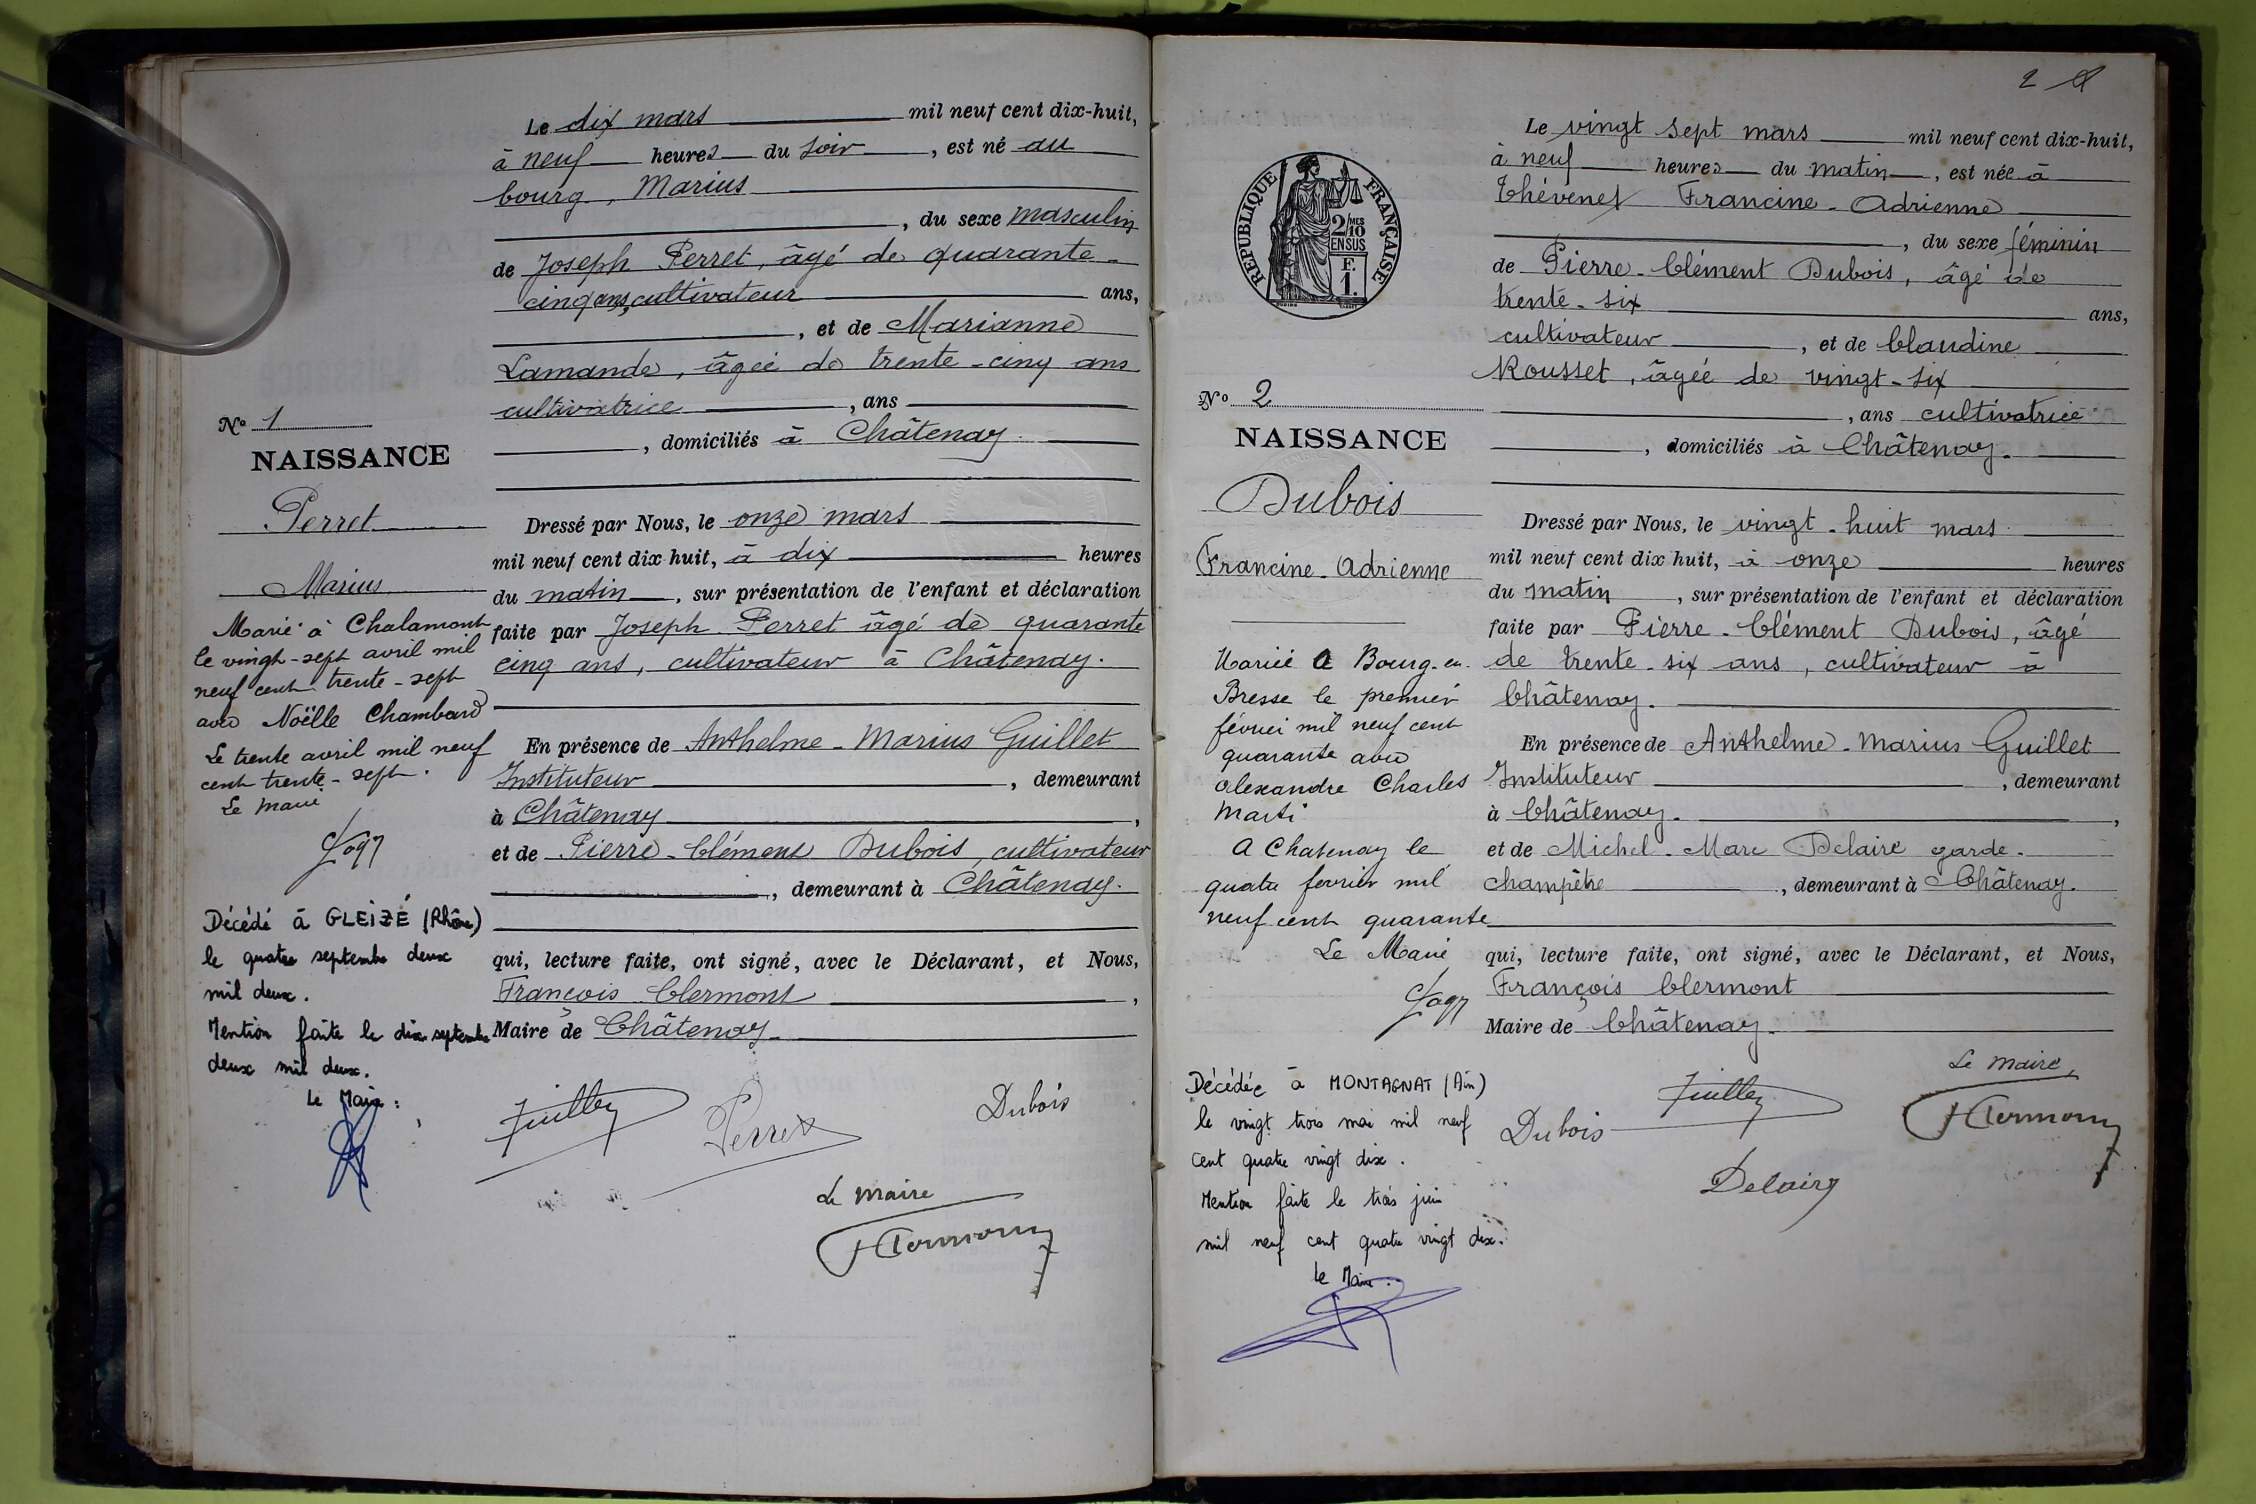 Le dix mars mil neuf cent dix-huit,
à neuf heures du soir, est né au
bourg, Marius
, du sexe masculin
de Joseph Perret, âgé de quarante-
cinq ans, cultivateur ans,
, et de Marianne
Lamande, âgée de trente-cinq ans
cultivatrice, ans
, domiciliés à Châtenay.
No 1
NAISSANCE
Perret
Marius
Marié à Chalamont
le vingt-sept avril mil
neuf cent trente-sept
avec Noëlle Chambard
Le trente avril mil neuf
cent trente-sept.
Le Maire
Décédé à GLEIZÉ (Rhône)
le quatre septembre deux
mil deux.
Mention faite le dix septembre
deux mil deux.
Le Maire :
Dressé par Nous, le onze mars
mil neuf cent dix huit, à dix heures
du matin, sur présentation de l'enfant et déclaration
faite par Joseph Perret âgé de quarante
cinq ans, cultivateur à Châtenay.
En présence de Anthelme-Marius Guillet
Instituteur, demeurant
à Châtenay,
et de Pierre-Clément Dubois, cultivateur
, demeurant à Châtenay.
qui, lecture faite, ont signé, avec le Déclarant, et Nous,
François Clermont,
Maire de Châtenay.
Perret
Dubois
Le Maire
2
Le vingt sept mars mil neuf cent dix-huit,
à neuf heures du matin, est née à
Thévenet Francine-Adrienne
, du sexe féminin
de Pierre-Clément Dubois, âgé de
trente-six ans,
cultivateur, et de Claudine
Rousset, âgée de vingt-six
, ans cultivatrice
, domiciliés à Châtenay.
RÉPUBLIQUE FRANÇAISE
2/10 MES
EN SUS
F.
1.
No 2
NAISSANCE
Dubois
Francine-Adrienne
Mariée à Bourg-en-
Bresse le premier
févrei mil neuf cent
quarante avec
Alexandre Charles
Marti
A Chatenay le
quatre fevrier mil
neuf cent quarante
Le Maire
Décédée à MONTAGNAT (Ain)
le vingt trois mai mil neuf
cent quatre vingt dix.
Mention faite le trois juin
mil neuf cent quatre vingt dix.
Le Maire.
Dressé par Nous, le vingt-huit mars
mil neuf cent dix huit, à onze heures
du matin, sur présentation de l'enfant et déclaration
faite par Pierre-Clément Dubois, âgé
de trente-six ans, cultivateur à
Châtenay.
En présence de Anthelme-Marius Guillet
Instituteur, demeurant
à Châtenay.,
et de Michel-Marc Delaire garde-
champêtre, demeurant à Châtenay.
qui, lecture faite, ont signé, avec le Déclarant, et Nous,
François Clermont
Maire de Châtenay.
Le Maire,
Dubois